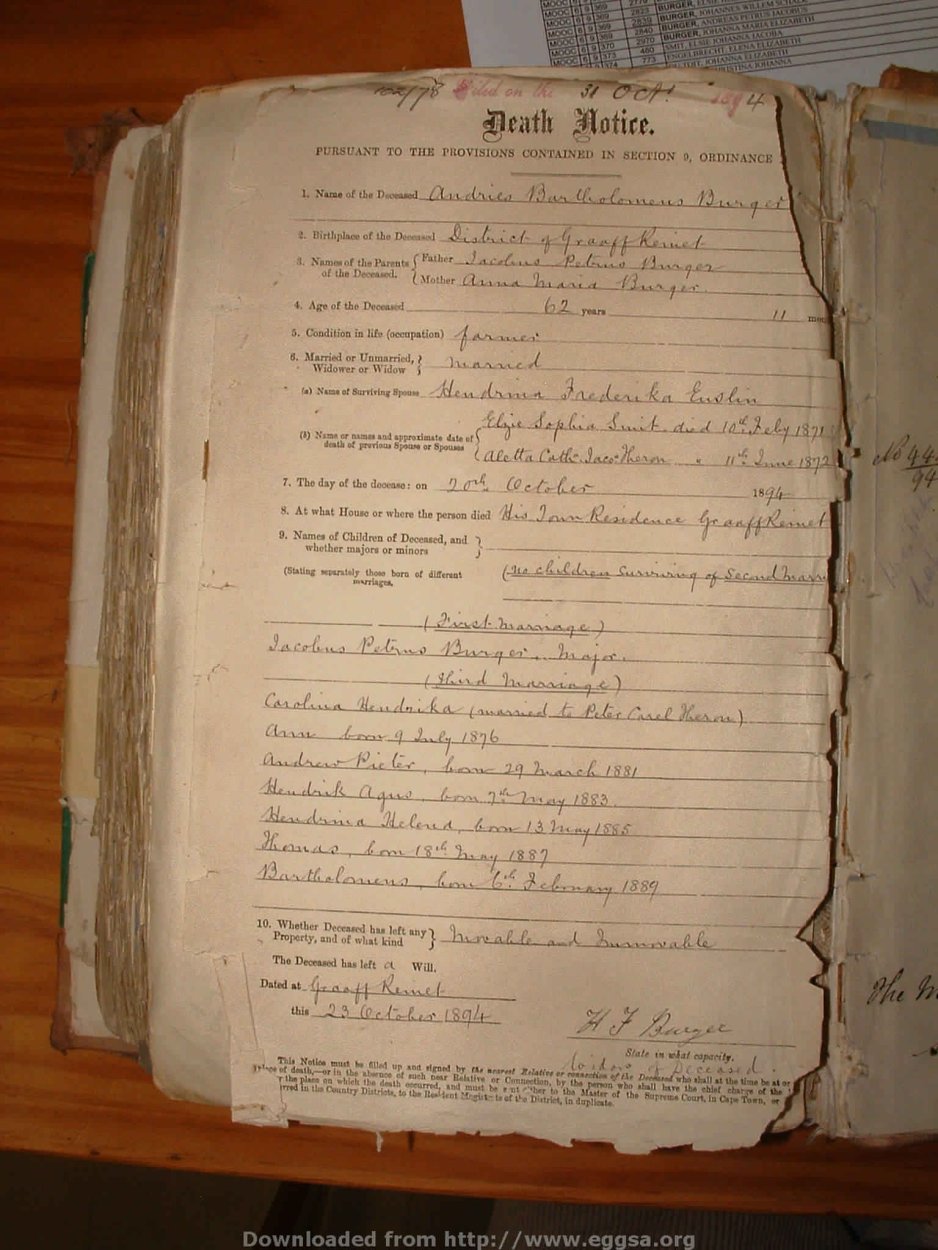 MOOC 6 9 369 2825 BURGER, JOHANNES WILLEM
MOOC 6 9 369 2839 BURGER, ANDREAS PETRUS JACOBUS
MOOC 6 9 369 2840 BURGER, JOHANNA MARIA ELIZABETH
MOOC 6 9 370 2970 SMIT, ELSIE JOHANNA JACOBA
MOOC 6 9 371 480 ENGELBRECHT, ELENA ELIZABETH
773 JOHANNA ELIZABETH
Filed on the 31 Oct. 1894
Death Notice.
PURSUANT TO THE PROVISIONS CONTAINED IN SECTION 9, ORDINANCE
1. Name of the Deceased Andries Bartholomeus Burger
2. Birthplace of the Deceased District of Graaff Reinet
3. Names of the Parents of the Deceased. Father Jacobus Petrus Burger
Mother Anna Maria Burger.
4. Age of the Deceased 62 years 11
5. Condition in life (occupation) farmer
6. Married or Unmarried, Widower or Widow married
(a) Name of Surviving Spouse Hendrina Frederika Enslin
(b) Name or names and approximate date of death of previous Spouse or Spouses Elzie Sophia Smit died 10th Feby 1871
Aletta Cath: Jaco: Theron " 11th June 1872
7. The day of the decease: on 20th October 1894
8. At what House or where the person died His Town Residence Graaff Reinet
9. Names of Children of Deceased, and whether majors or minors
(Stating separately those born of different marriages. (no children surviving of Second
(First marriage)
Jacobus Petrus Burger. Major.
(third marriage)
Carolina Hendrika (married to Peter Carel Theron)
Ann born 9 July 1876
Andrew Pieter, born 29 March 1881
Hendrik Agus, born 7th May 1883
Hendrina Helena, born 13 May 1885
Thomas, born 18th May 1887
Bartholomeus, born 6th February 1889
10. Whether Deceased has left any Property, and of what kind Movable and Immovable
The Deceased has left a Will.
Dated at Graaff Reinet
this 23 October 1894
H F Burger
State in what capacity.
Widow of Deceased.
This Notice must be filled up and signed by the nearest Relative or connection of the Deceased who shall at the time be at or
place of death,—or in the absence of such near Relative or Connection, by the person who shall have the chief charge of the
the place on which the death occurred, and must be sent either to the Master of the Supreme Court, in Cape Town, or
rred in the Country Districts, to the Resident Magistrate of the District, in duplicate.
No 44
94
The
Downloaded from http://www.eggsa.org